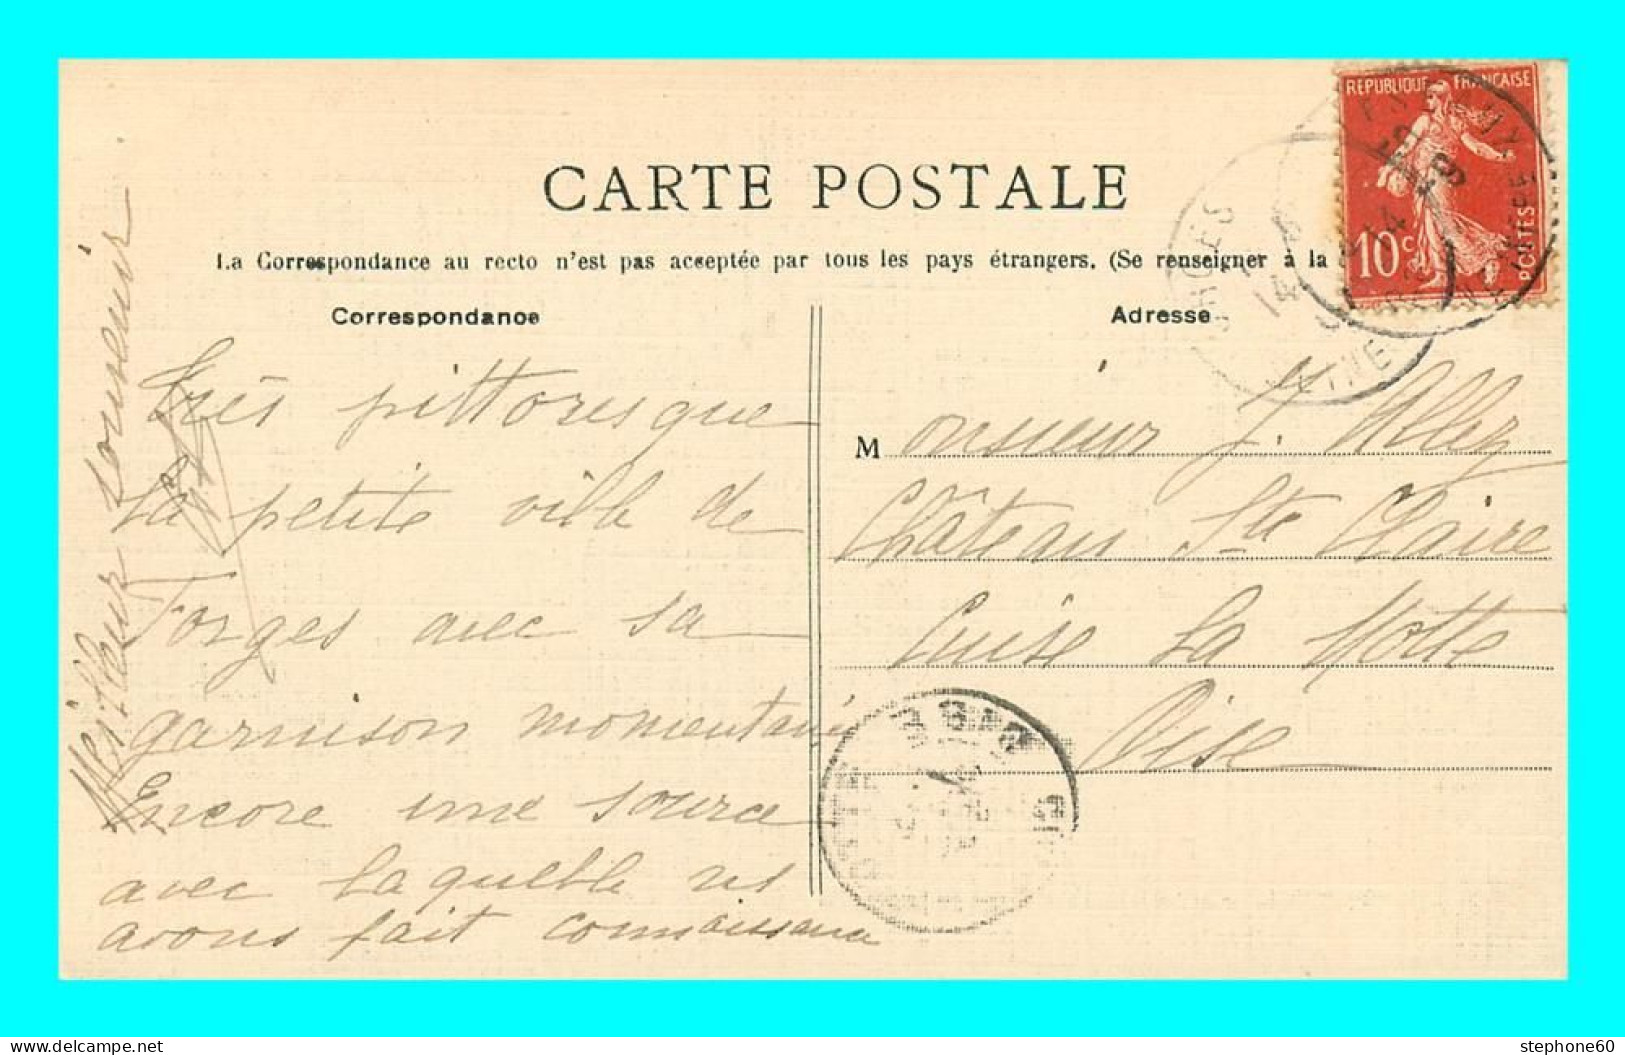 CARTE POSTALE
La Correspondance au recto n'est pas acceptée par tous les pays étrangers. (Se renseigner à la
Correspondance
Adresse
REPUBLIQUE FRANÇAISE
10c
POSTES
Très pittoresque
la petite ville de
Forges avec sa
garnison momentané
Encore une source
avec laquelle ns
avons fait connaissance
Meilleur souvenir
Monsieur J. Allez
Château Ste Claire
Cuise La Motte
Oise
stephone60